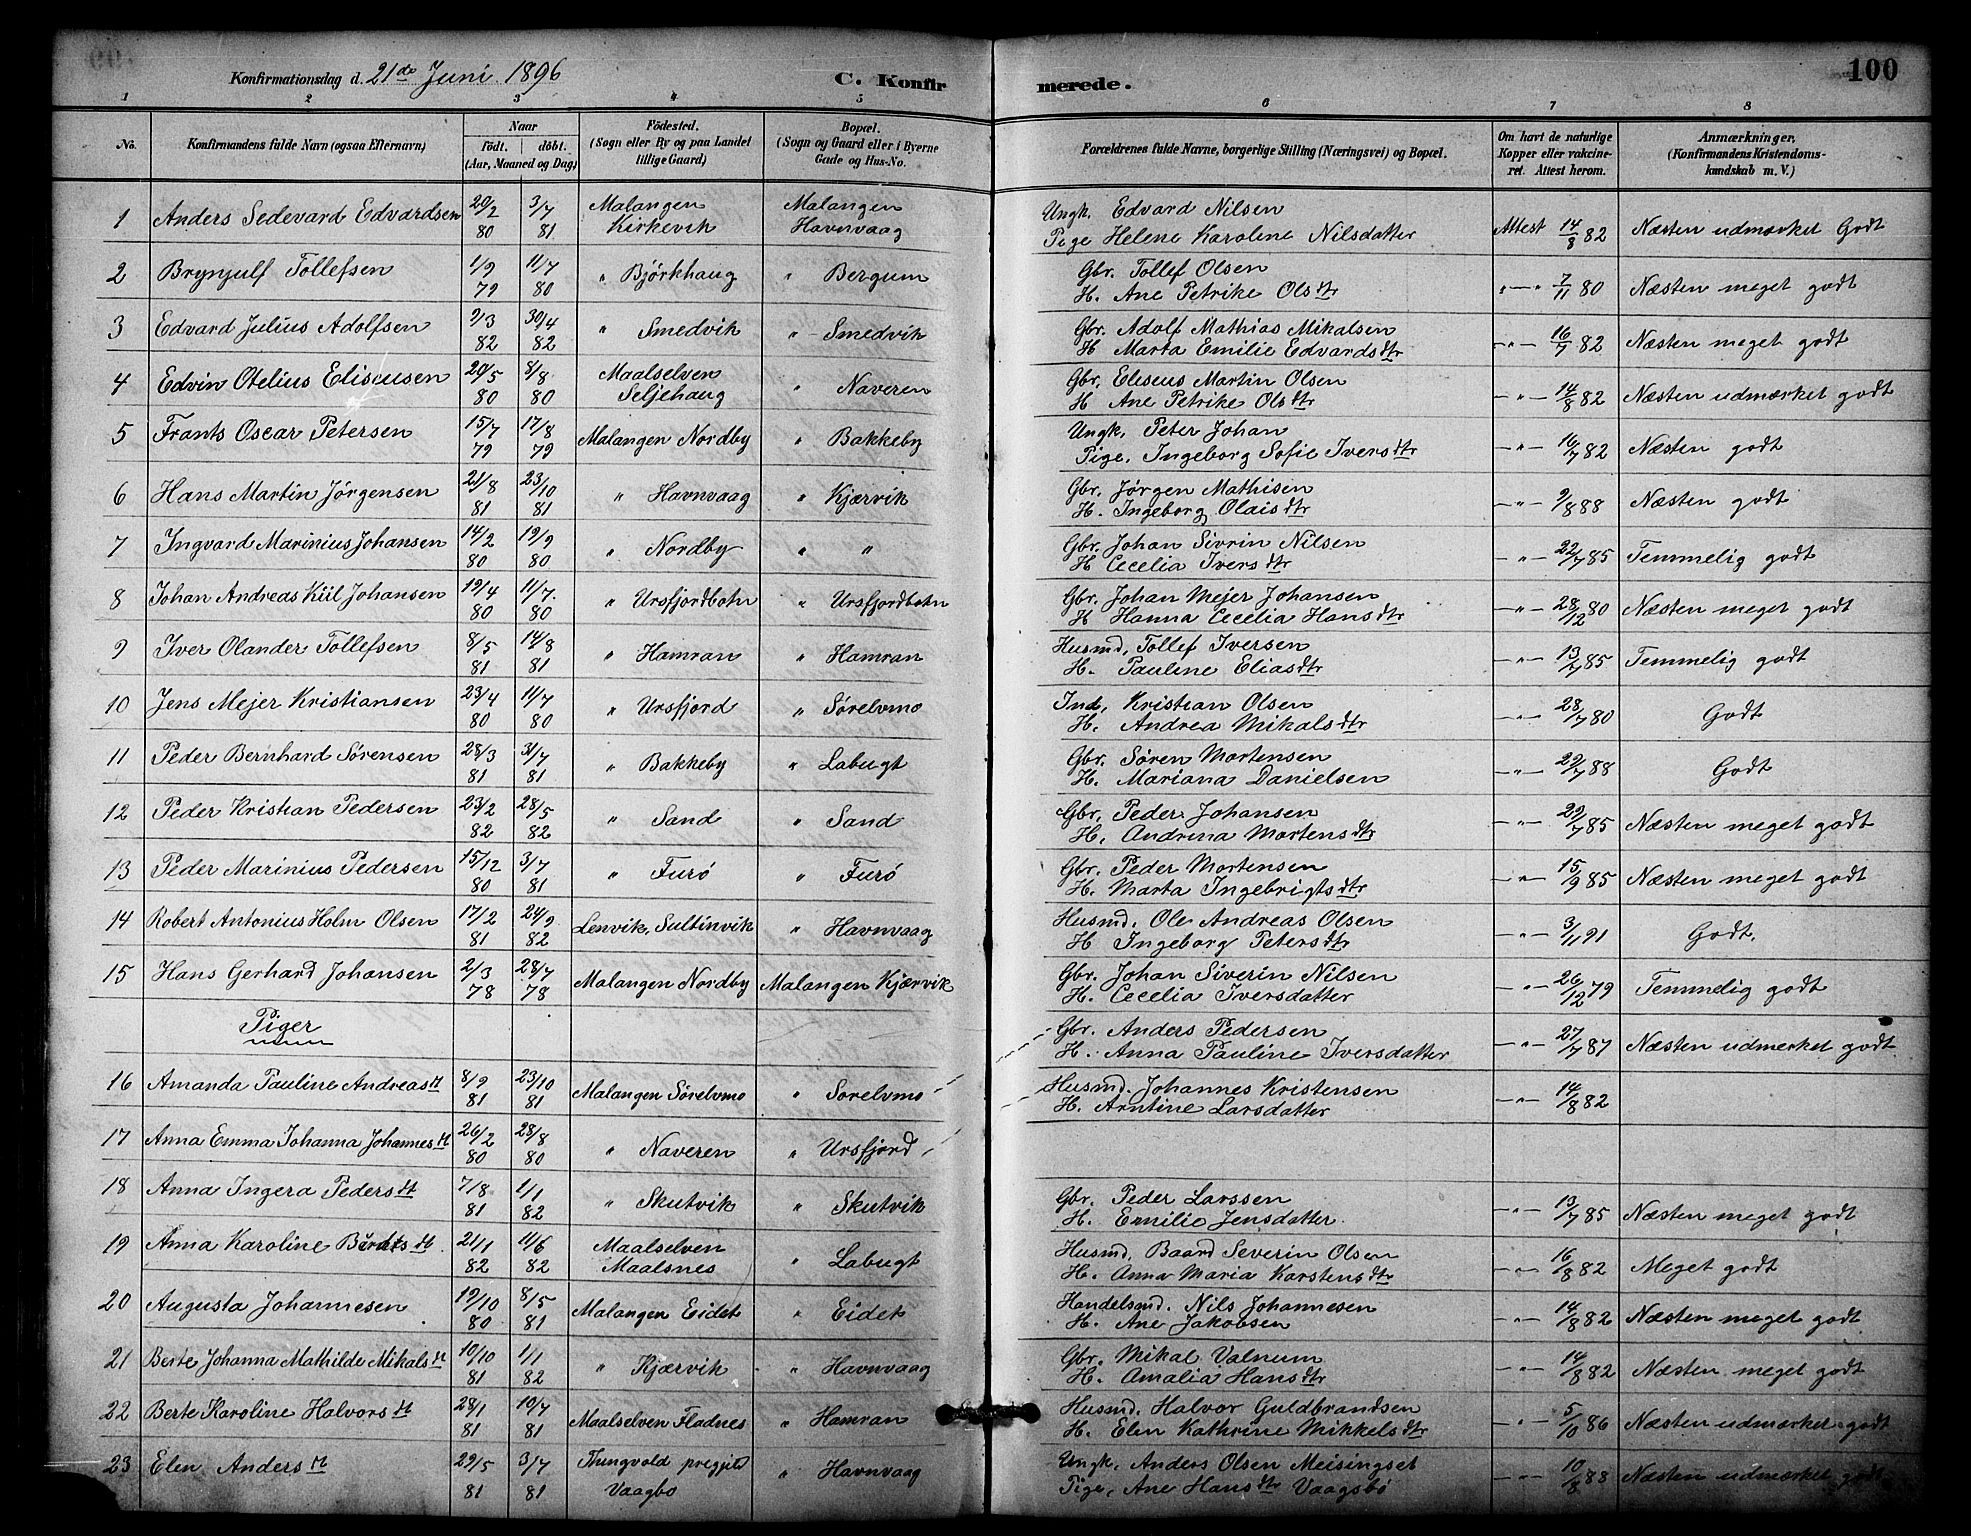 Konfirmationsdag d. 21de Juni 1896 C. Konfir merede. 100
1 2 3 4 5 6 7 8
No. Konfirmandens fulde Navn (ogsaa Efternavn) Naar Födt. döbt. (Aar, Maaned og Dag) Födested. (Sogn eller By og paa Landet tillige Gaard) Bopæl. (Sogn og Gaard eller i Byerne Gade og Hus-No. Forældrenes fulde Navne, borgerlige Stilling (Næringsvei) og Bopæl. Om havt de naturlige Kopper eller vakcineret. Attest herom. Anmærkninger. (Konfirmandens Kristendomskundskab m. V.)
1 Anders Sedevard Edvardsen 20/2 80 3/7 81 Malangen Kirkevik Malangen Havnvaag Ungk. Edvard Nilsen Pige Helene Karoline Nilsdatter Attest 14/8 82 Næsten udmærket Godt
2 Brynjulf Tollefsen 1/9 79 11/7 80 " Björkhaug " Bergum Gbr. Tollef Olsen H. Ane Petrike Olsdtr " — " 7/11 80 Næsten meget godt
3 Edvard Julius Adolfsen 9/3 82 30/4 82 " Smedvik " Smedvik Gbr. Adolf Mathias Mikalsen H Marta Emilie Edvardsdtr — " — 16/7 82 Næsten meget godt
4 Edvin Otelius Eliseusen 20/5 80 8/8 80 Maalselven Seljehaug " Naveren Gbr. Eliseus Martin Olsen H Ane Petrike Olsdtr — " — 14/8 82 Næsten udmærket godt
5 Frants Oscar Petersen 15/7 79 17/8 79 Malangen Nordby " Bakkeby Ungk. Peter Johan Pige. Ingeborg Sofie Iversdtr — " — 16/7 82 Næsten godt
6 Hans Martin Jörgensen 21/8 81 23/10 81 " Havnvaag " Kjærvik Gbr. Jörgen Mathisen H. Ingeborg Olaisdtr — " — 9/8 88 Næsten godt
7 Ingvard Marinius Johansen 14/2 80 19/9 80 " Nordby " " Gbr. Johan Sivrin Nilsen H Cecelia Iversdtr — " — 22/7 85 Temmelig godt
8 Johan Andreas Kiil Johansen 19/4 80 11/7 80 " Ursfjordbotn " Ursfjordbotn Gbr. Johan Mejer Johansen H Hanna Cecelia Hansdtr — " — 28/12 80 Næsten meget godt
9 Iver Olander Tollefsen 8/5 81 14/8 81 " Hamran " Hamran Husmd. Tollef Iversen H. Pauline Eliasdtr — " — 13/7 85 Temmelig godt
10 Jens Mejer Kristiansen 23/4 80 11/7 80 " Ursfjord " Sørelvmo Ind. Kristian Olsen H. Andrea Mikalsdtr — " — 28/7 80 Godt
11 Peder Bernhard Sörensen 28/3 81 31/7 81 " Bakkeby " Labugt Gbr. Sören Mortensen H. Mariana Danielsen — " — 29/7 88 Godt
12 Peder Kristian Pedersen 23/2 82 28/5 82 " Sand " Sand Gbr. Peder Johansen H. Andrina Mortensdtr — " — 29/7 85 Næsten meget godt
13 Peder Marinius Pedersen 15/12 80 3/7 81 " Furö " Furö Gbr. Peder Mortensen H. Marta Ingebrigtsdtr — " — 15/9 85 Næsten meget godt
14 Robert Antonius Holm Olsen 17/2 81 24/9 82 Lenvik, Sultinvik " Havnvaag Husmd. Ole Andreas Olsen H Ingeborg Petersdtr — " — 3/11 91 Godt.
15 Hans Gerhard Johansen 2/3 78 28/7 78 Malangen Nordby Malangen Kjærvik Gbr. Johan Siverin Nilsen H. Cecelia Iversdatter — " — 26/12 79 Temmelig godt
Piger Gbr. Anders Pedersen H. Anna Pauline Iversdatter — " — 27/7 87 Næsten udmerket godt
16 Amanda Pauline Andreasdt 8/9 81 23/10 81 Malangen Sörelvmo " Sørelvmo Husmd. Johannes Kristensen H. Arntine Larsdatter — " — 14/8 82
17 Anna Emma Johanna Johannesdt 26/2 80 28/8 80 " Naveren " Ursfjord
18 Anna Ingera Pedersdt 7/8 81 1/1 82 " Skutvik " Skutvik Gbr. Peder Larssen H. Emilie Jensdatter. — " — 13/7 85 Næsten meget godt
19 Anna Karoline 21/1 82 11/6 82 Maalselven Maalsnes " Labugt Husmd. Baard Severin Olsen H. Anna Maria Karstensdtr — " — 16/8 82 Meget godt
20 Augusta Johannesen 19/10 80 8/5 81 Malangen Eidet " Eidet Handelsmd. Nils Johannesen H. Ane Jakobsen — " — 14/8 82 Næsten meget godt
21 Berte Johanna Mathilde Mikalsdt 10/10 81 1/1 82 " Kjærvik " Havnvaag Gbr. Mikal Valnum H. Amalia Hansdtr — " — 14/8 82 Næsten meget godt
22 Berte Karoline Halvorsdt 28/1 81 10/7 81 Maalselven Fladnes " Hamran Husmd. Halvor Guldbrandsen H. Elen Kathrine Mikkelsdtr — " — 5/10 86 Næsten udmærket godt
23 Elen Andersdt 29/5 81 3/7 81 Thingvold Vaagbo " Havnvaag Ungk. Anders Olsen Meisingset Pige. Ane Hansdtr Vaagsbö — " — 10/8 88 Næsten udmærket godt